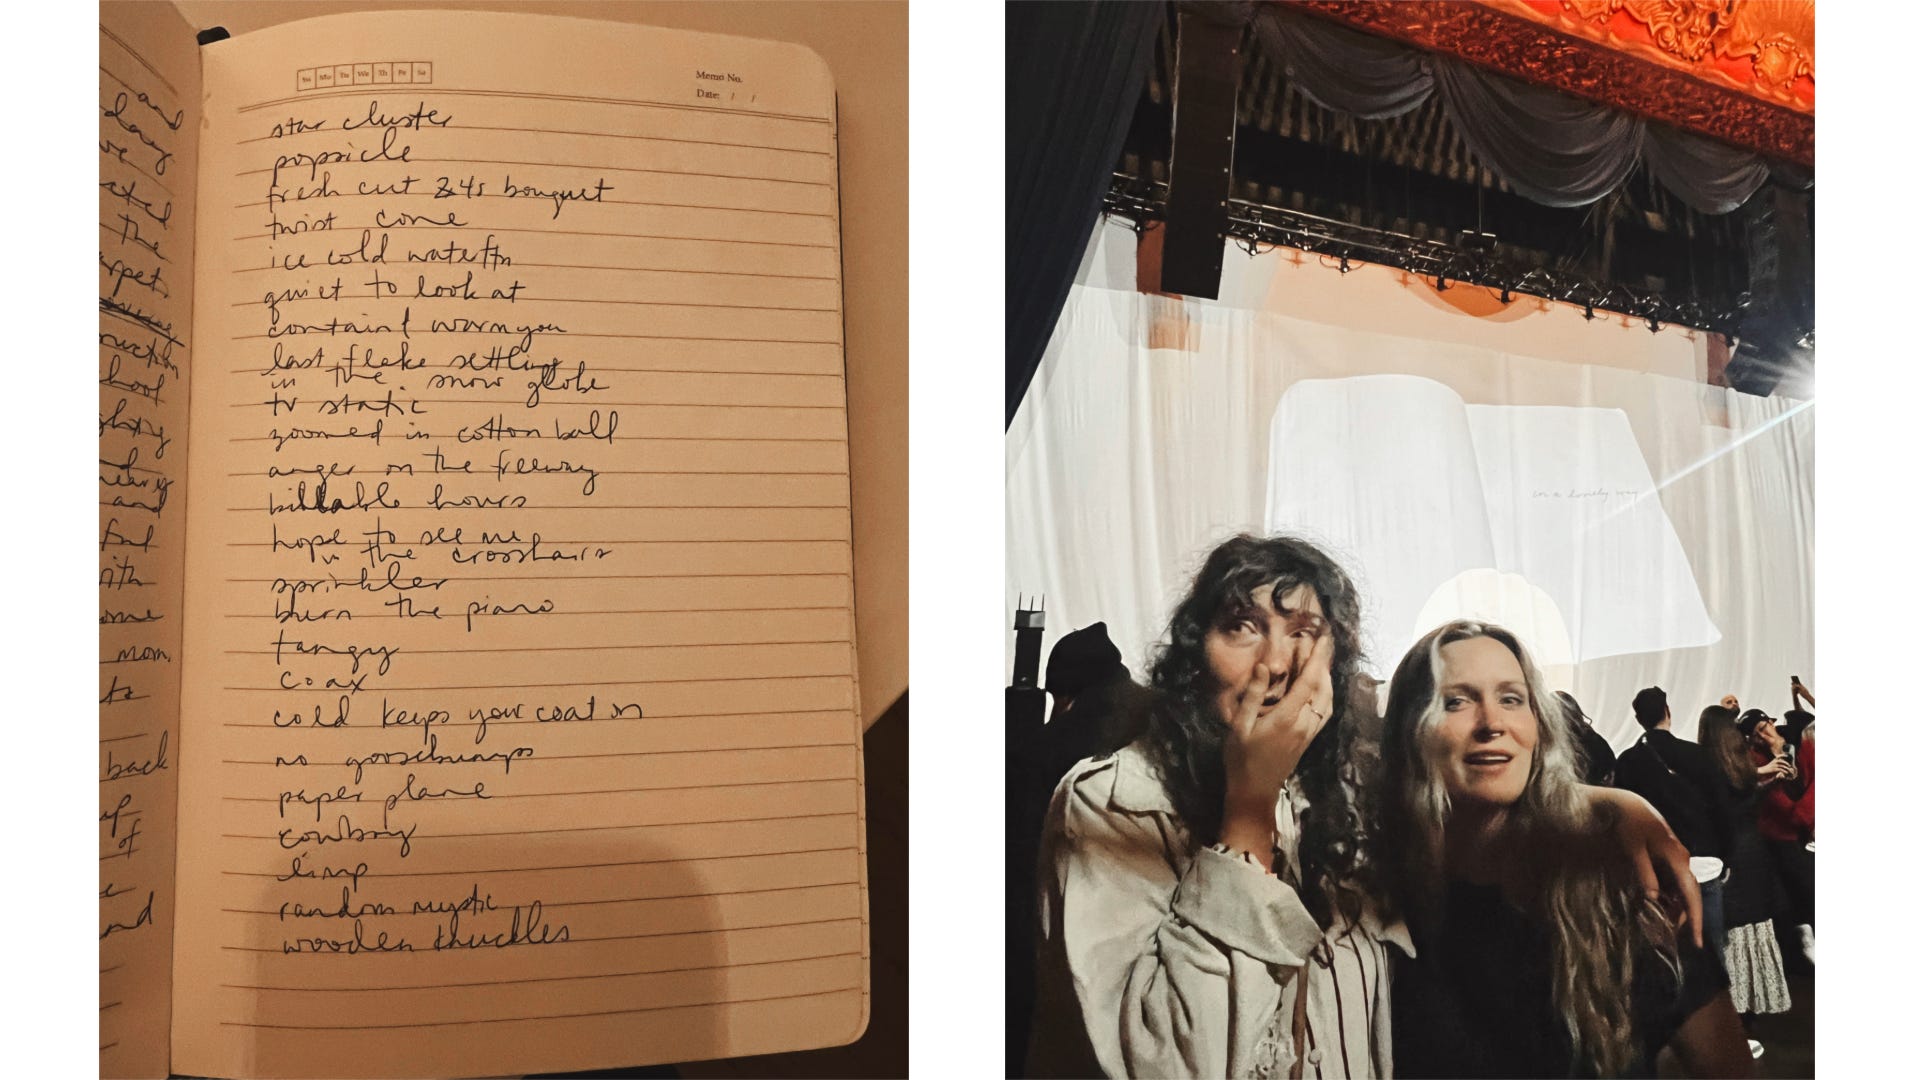 and
day
ve
the
rpet,
hool
and
ith
ome
mom.
to
back
of
Su Mo Tu We Th Fr Sa
Memo No.
Date: / /
star cluster
popsicle
fresh cut 2x4s bouquet
twist cone
ice cold water
quiet to look at
contain / warm you
last flake settling
in the snow globe
tv static
zoomed in cotton ball
anger on the freeway
billable hours
hope to see me
in the crosshairs
sprinkler
burn the piano
tangy
coax
cold keeps your coat on
no goosebumps
paper plane
cowboy
limp
random mystic
wooden knuckles
in a lonely way